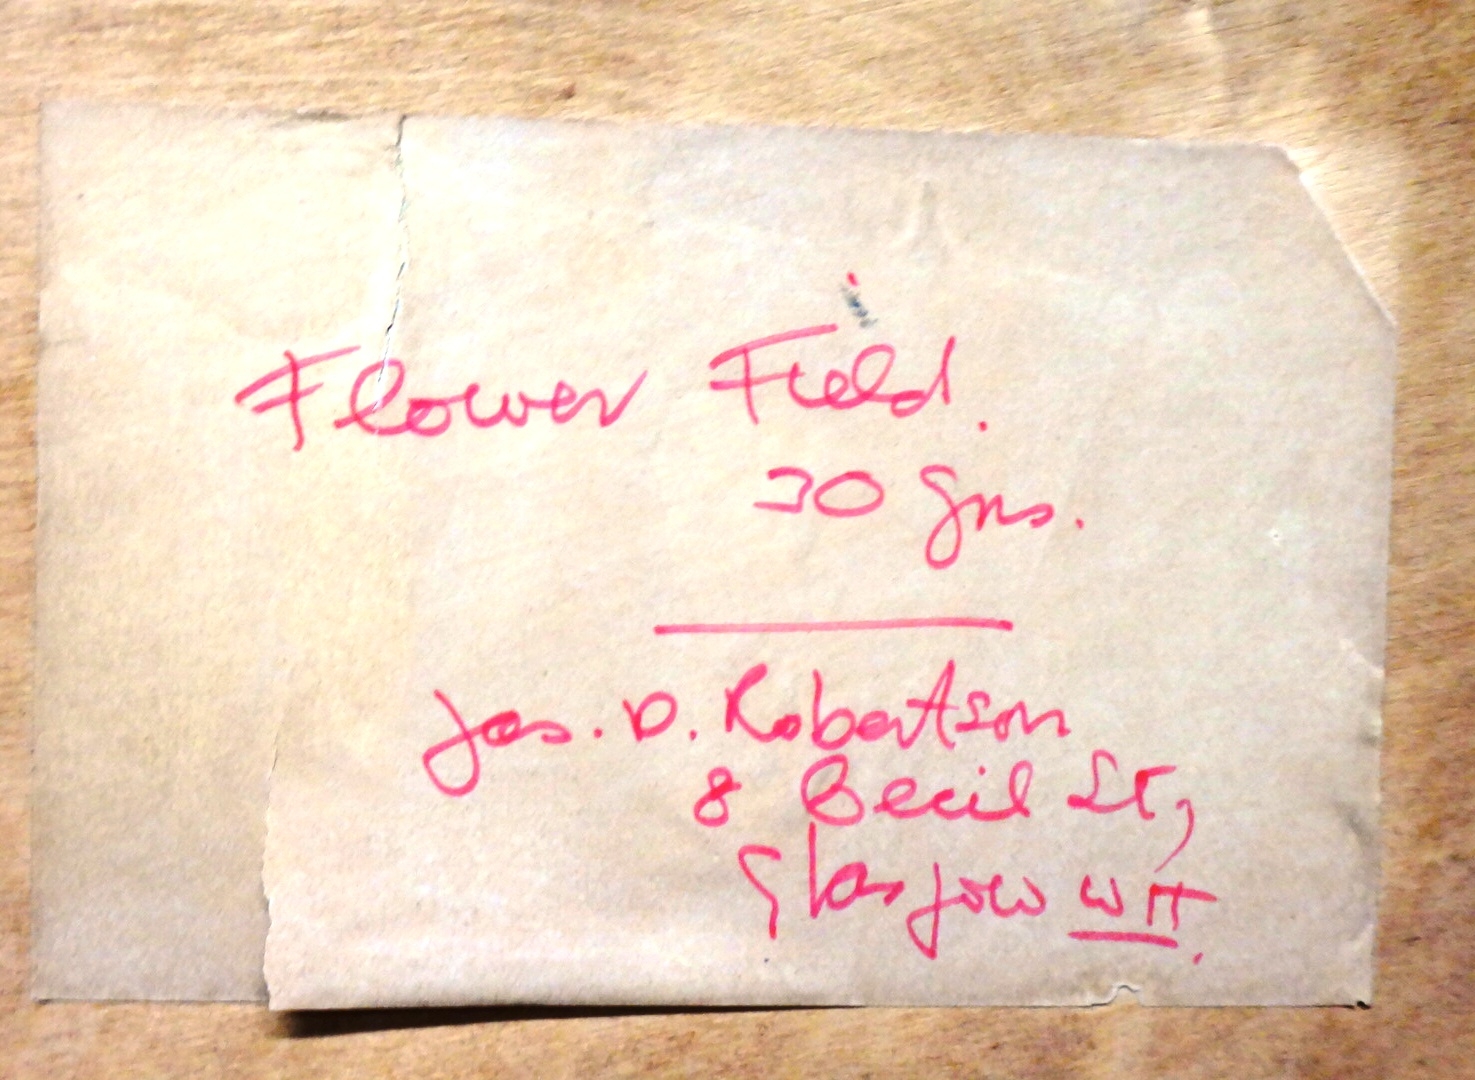 Flower Field.
30 gns.
Jas. D. Robertson
8 Cecil St,
Glasgow WII.